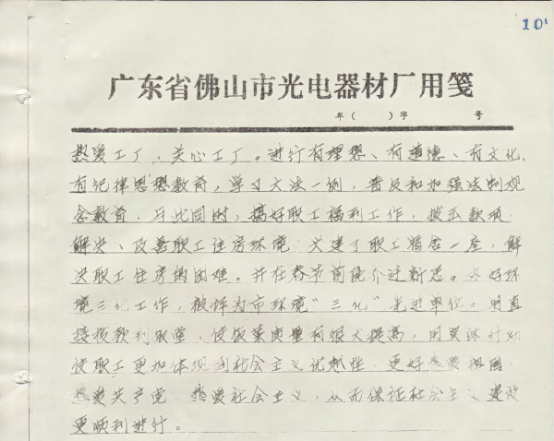 101
广东省佛山市光电器材厂用笺
年( )字 号
热爱工厂,关心工厂。进行有理想、有道德、有文化、
有纪律思想教育,学习大法一例,普及和加强法制观
念教育。与此同时,搞好职工福利工作,拨出款项
解决、改善职工住房环境,又建了职工宿舍一座,解
决职工住房的困难。并在春节前能介迁新居。好环
境三化工作,被评为市环境“三化”先进单位。用直
接拨款利取暨,使饭菜质量有很大提高,用实际行动
使职工更加体现到社会主义优越性,更好热爱祖国,
热爱共产党,热爱社会主义,从而保证社会主义建设
更顺利进行。